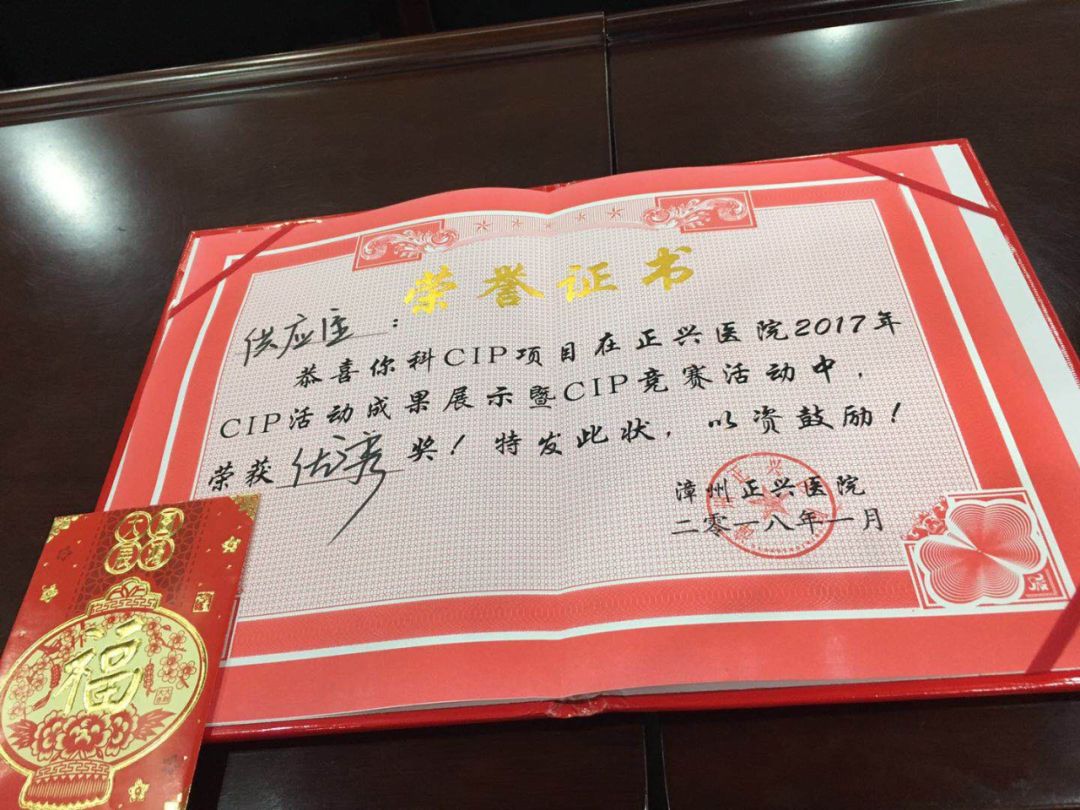 荣誉证书
供应室：
恭喜你科CIP项目在正兴医院2017年
CIP活动成果展示暨CIP竞赛活动中，
荣获优秀奖！特发此状，以资鼓励！
漳州正兴医院
二零一八年一月
福